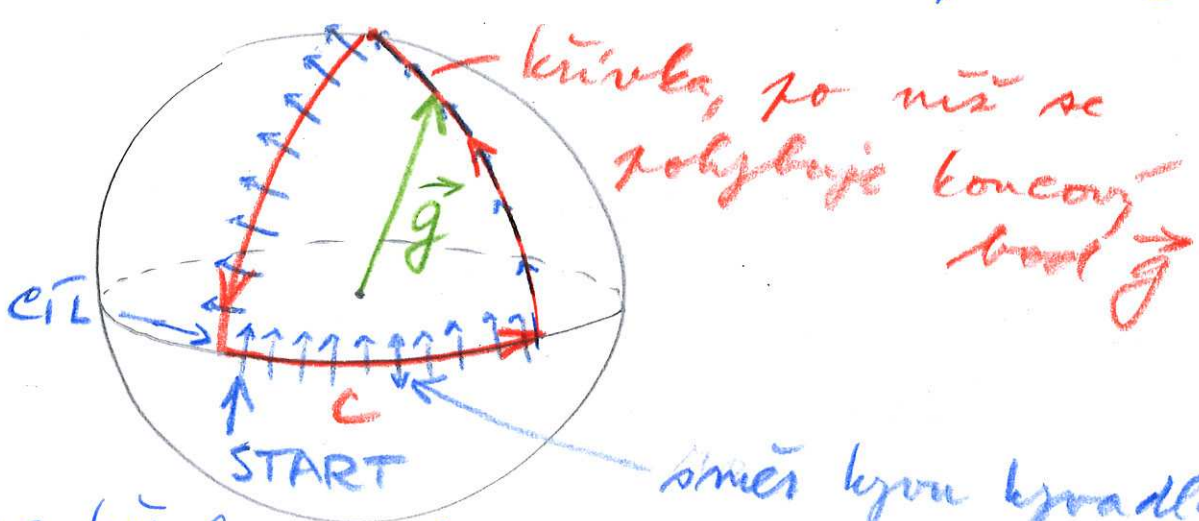 křivka, po níž se
pohybuje koncový
bod g⃗
g⃗
CÍL
C
START
směr kyvu kyvadl